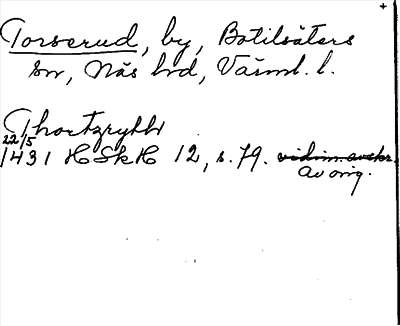 +
Torserud, by, Botilsäters
sn, Näs hrd, Värml. l.
Thortzrythr
22/5
1431 HSkH 12, s. 79. vidim. avskr.
Av orig.